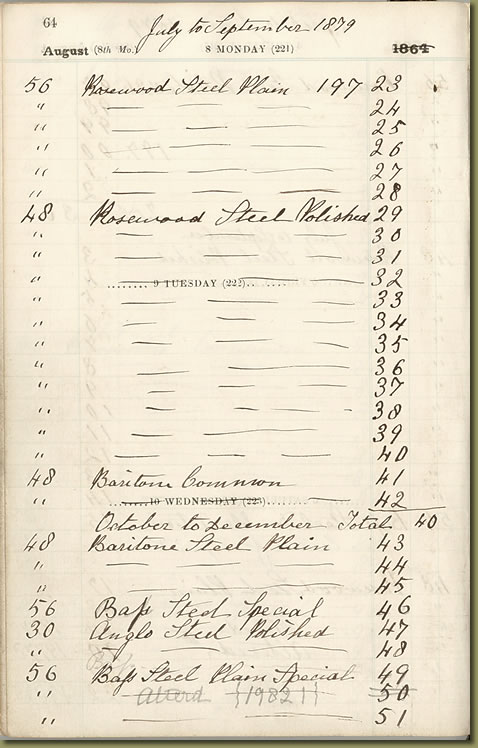 64 July to September 1879
August (8th Mo.) 8 MONDAY (221) 1864
56 Rosewood Steel Plain 197 23
" — — — 24
" — — — 25
" — — — 26
" — — — 27
" — — — 28
48 Rosewood Steel Polished 29
" — — — 30
" — — — 31
" 9 TUESDAY (222) — — 32
" — — — 33
" — — — 34
" — — — 35
" — — — 36
" — — — 37
" — — — 38
" — — — 39
" — — — 40
48 Baritone Common 41
" 10 WEDNESDAY (223) — 42
October to December Total 40
48 Baritone Steel Plain 43
" — — — 44
" — — — 45
56 Bass Steel Special 46
30 Anglo Steel Polished 47
" — — — 48
56 Bass Steel Plain Special 49
" {19821} 50
" — — — 51